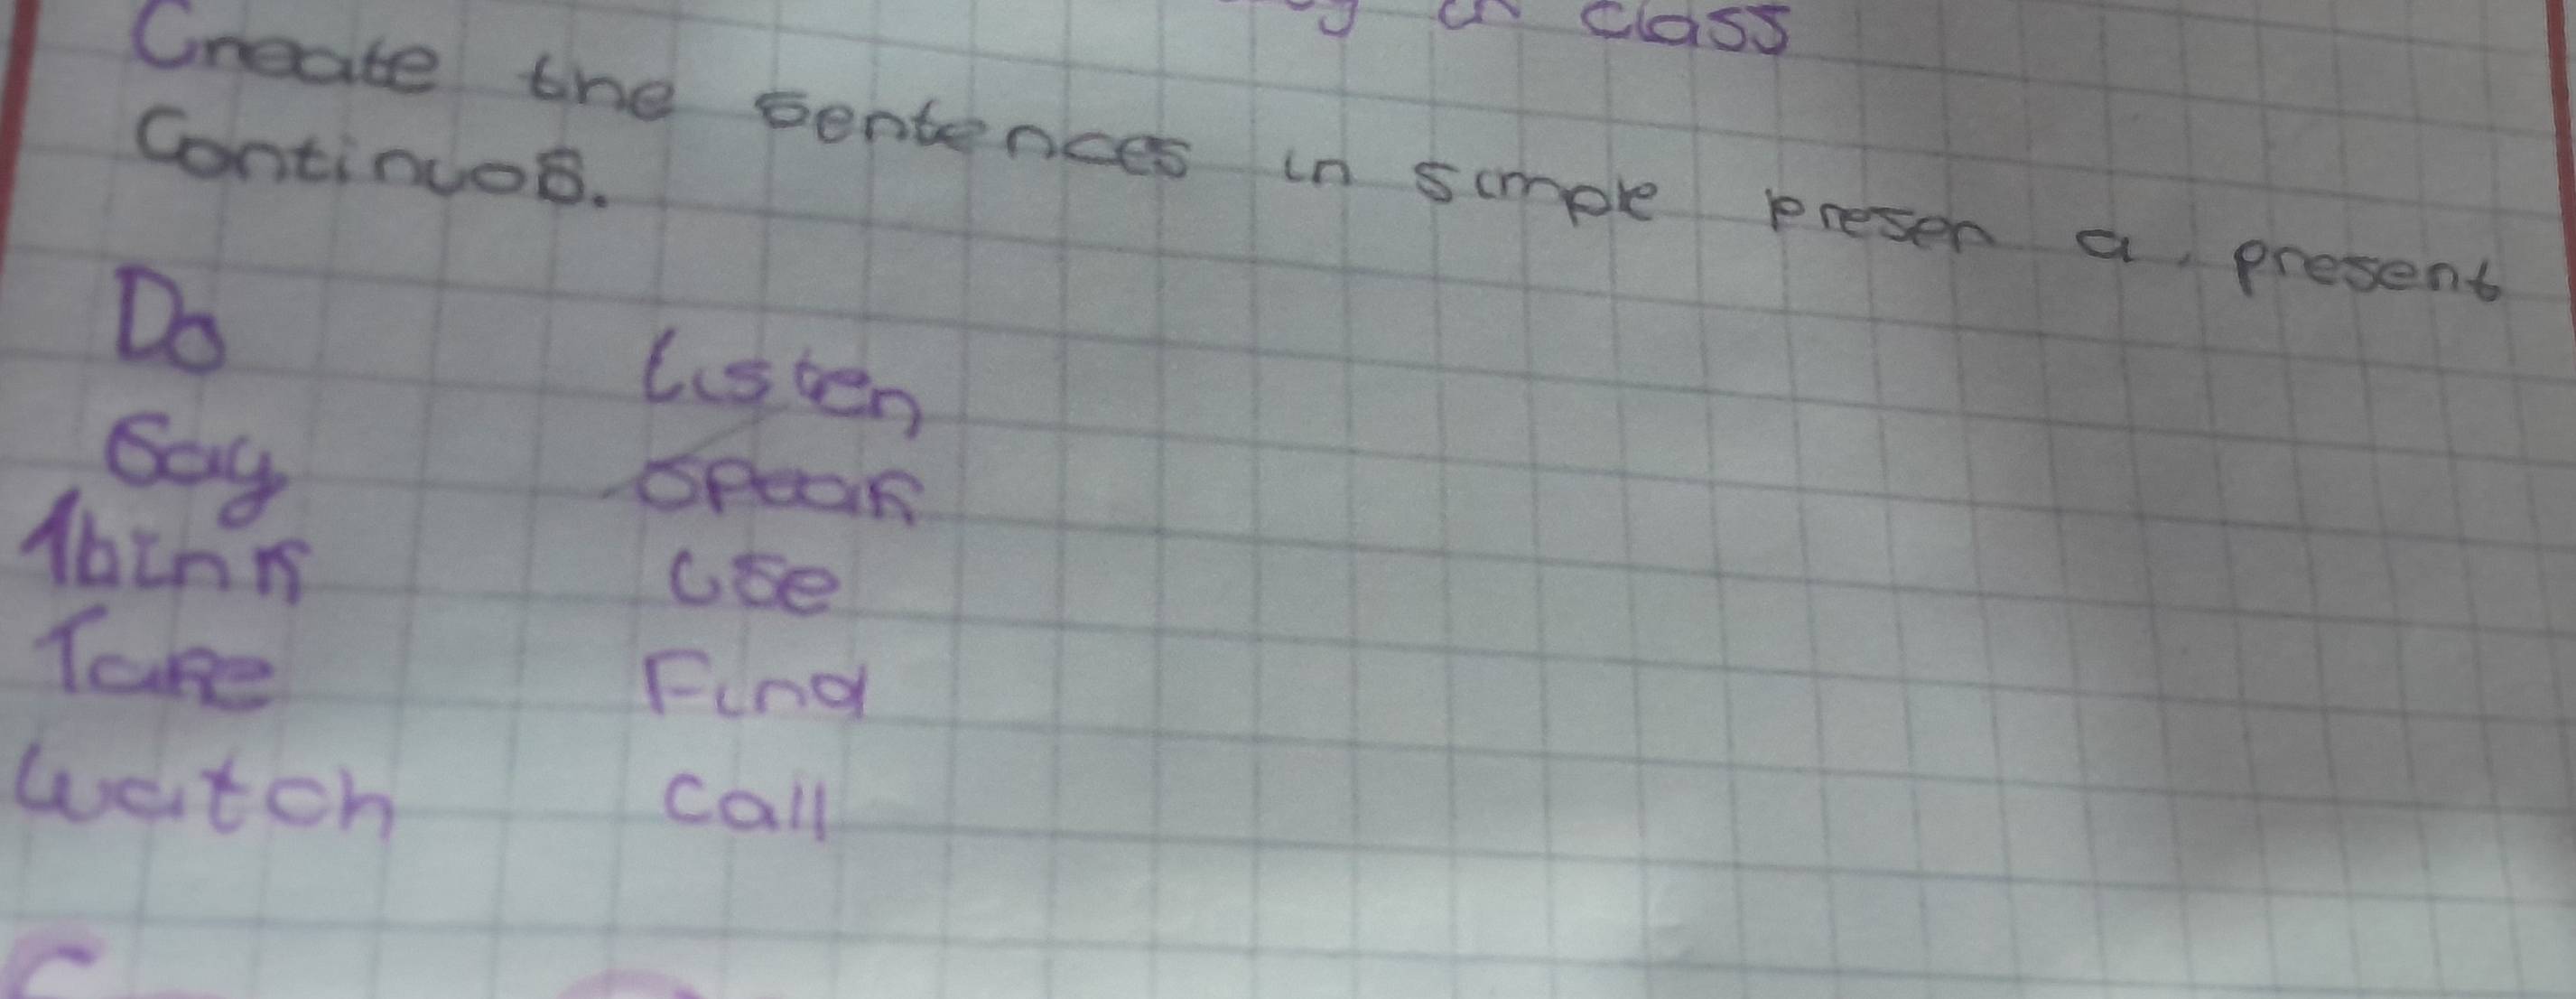 in class
Create the sentences in simple presen a, present
Continuos.
Do
Say
Think
Take
Watch
Listen
Speak
Use
Find
Call